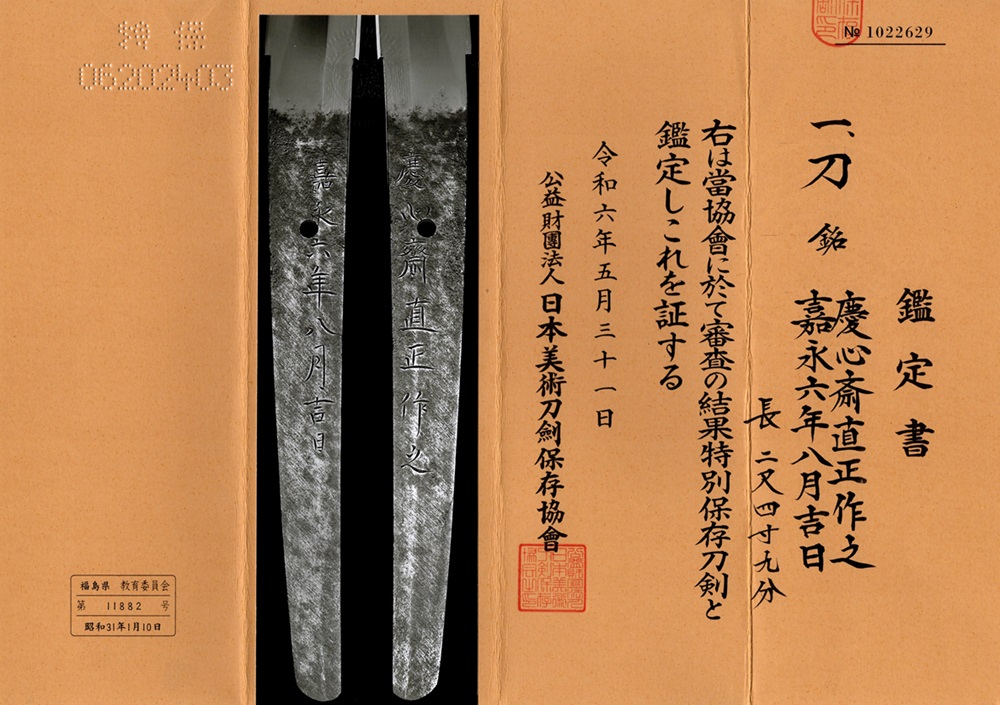 № 1022629
鑑定書
一、刀 銘 慶心斎直正作之
嘉永六年八月吉日
長 二尺四寸九分
右は當協會に於て審査の結果特別保存刀剣と
鑑定しこれを証する
令和六年五月三十一日
公益財團法人 日本美術刀劍保存協會
慶心齋直正作之
嘉永六年八月吉日
特保
06202403
福島県 教育委員会
第 11882 号
昭和31年1月10日